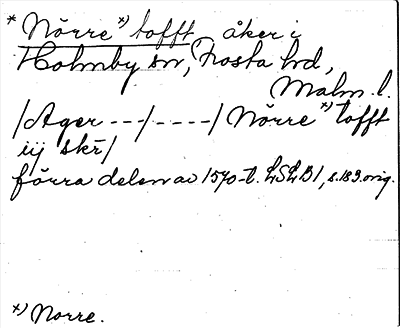 * Nörre *) tofft, åker i
Holmby sn, Frosta hd,
Malm. l.
/Ager ---/----/ Nörre *) tofft
iij skr̄/
förra delen av 1570-t. LSLB1, s. 189 orig.
*) Norre.